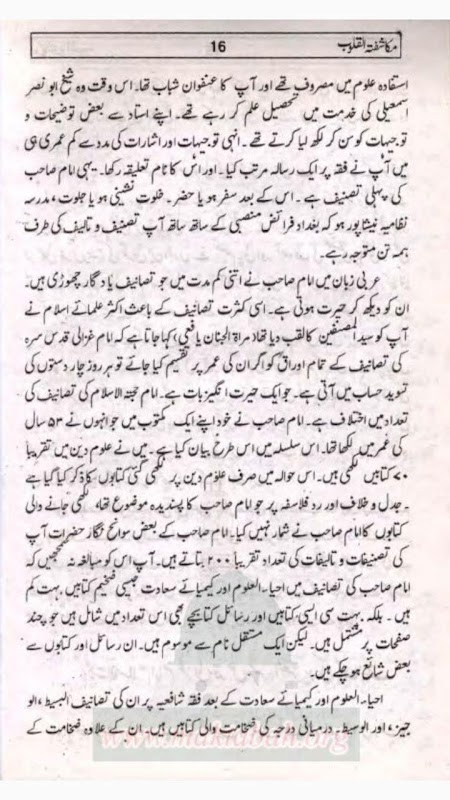 مکاشفتہ القلوب 16
استفادہ علوم میں مصروف تھے اور آپ کا عنفوان شباب تھا۔ اس وقت وہ شیخ ابو نصر
اسمعیلی کی خدمت میں تحصیل علم کر رہے تھے۔ اپنے استاد سے بعض توضیحات و
توجیہات کو سن کر لکھ لیا کرتے تھے۔ انہی توجیہات اور اشارات کی مدد سے کم عمری ہی
میں آپ نے فقہ پر ایک رسالہ مرتب کیا۔ اور اس کا نام تعلیقہ رکھا۔ یہی امام صاحب
کی پہلی تصنیف ہے۔ اس کے بعد سفر ہو یا حضر۔ خلوت نشینی ہو یا جلوت، مدرسہ
نظامیہ نیشاپور ہو کہ بغداد فرائض منصبی کے ساتھ ساتھ آپ تصنیف و تالیف کی طرف
ہمہ تن متوجہ رہے۔
عربی زبان میں امام صاحب نے اتنی کم مدت میں جو تصانیف یادگار چھوڑی ہیں۔
ان کو دیکھ کر حیرت ہوتی ہے۔ اسی کثرت تصانیف کے باعث اکثر علمائے اسلام نے
آپ کو سید المصنفین کا لقب دیا تھا( مراۃ الجنان یافعی) کہا جاتا ہے کہ امام غزالی قدس سرہ
کی تصانیف کے تمام اوراق کو اگر ان کی عمر پر تقسیم کیا جائے تو ہر روز چار دستوں کی
تسوید حساب میں آتی ہے۔ جو ایک حیرت انگیز بات ہے۔ امام حجتہ الاسلام کی تصانیف کی
تعداد میں اختلاف ہے۔ امام صاحب نے خود اپنے ایک مکتوب میں جو انہوں نے ۵۳ سال
کی عمر میں لکھا تھا۔ اس سلسلہ میں اس طرح بیان کیا ہے۔ میں نے علوم دین میں تقریبا
۷۰ کتابیں لکھی ہیں۔ اس حوالہ میں صرف علوم دین پر لکھی گئی کتابوں کا ذکر کیا گیا ہے
۔ جدل و خلاف اور رد فلاسفہ پر جو امام صاحب کا پسندیدہ موضوع تھا، لکھی جانے والی
کتابوں کا امام صاحب نے شمار نہیں کیا۔ امام صاحب کے بعض سوانح نگار حضرات آپ
کی تصنیفات و تالیفات کی تعداد تقریبا ۲۰۰ بتاتے ہیں۔ آپ اس کو مبالغہ نہ سمجھیں کہ
امام صاحب کی تصانیف میں احیاء العلوم اور کیمیائے سعادت جیسی ضخیم کتابیں، بہت کم
ہیں۔ بلکہ بہت سی ایسی کتابیں اور رسائل کتابچے بھی اس تعداد میں شامل ہیں جو چند
صفحات پر مشتمل ہیں۔ لیکن ایک مستقل نام سے موسوم ہیں۔ ان رسائل اور کتابوں سے
بعض شائع ہو چکے ہیں۔
احیاء العلوم اور کیمیائے سعادت کے بعد فقہ شافعیہ پر ان کی تصانیف البسیط، الو
جیز، اور الوسیط۔ درمیانی درجہ کی ضخامت والی کتابیں ہیں۔ ان کے علاوہ ضخامت کے
www.maktabah.org